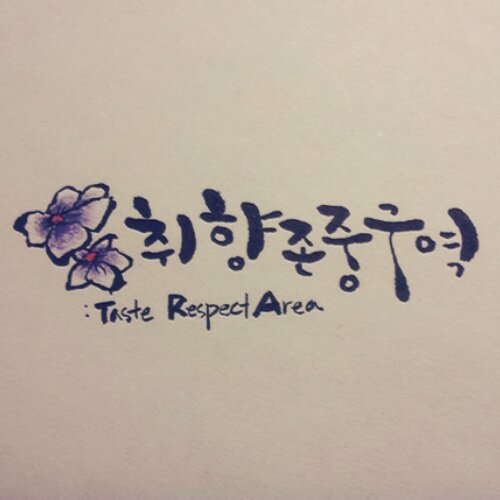 취향존중구역
: Taste Respect Area